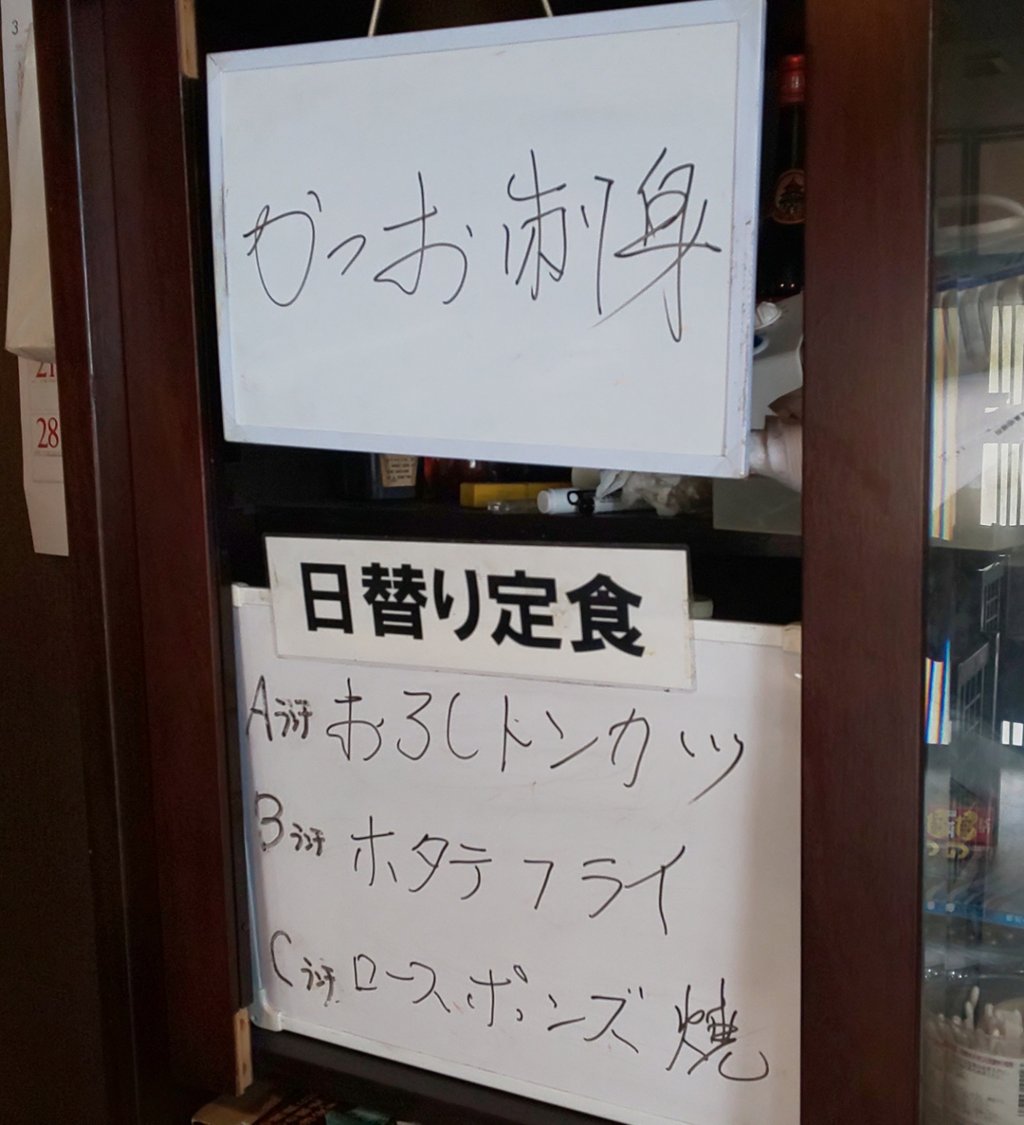 かつお刺身
日替り定食
Aランチ おろしトンカツ
Bランチ ホタテフライ
Cランチ ロースポンズ焼
3
21
28